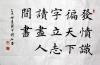 發憤識
徧天下
字立志
讀盡人
間書